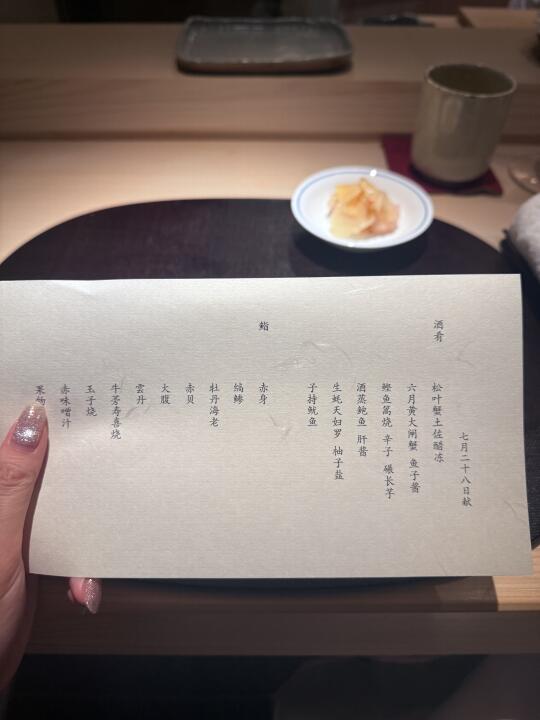 七月二十八日献
酒肴
松叶蟹土佐醋冻
六月黄大闸蟹 鱼子酱
鲣鱼篙烧 辛子 碾长芋
酒蒸鲍鱼 肝酱
生蚝天妇罗 柚子盐
子持鱿鱼
鮨
赤身
缟鲹
牡丹海老
赤贝
大腹
雲丹
牛芳寿喜烧
玉子烧
赤味噌汁
果物